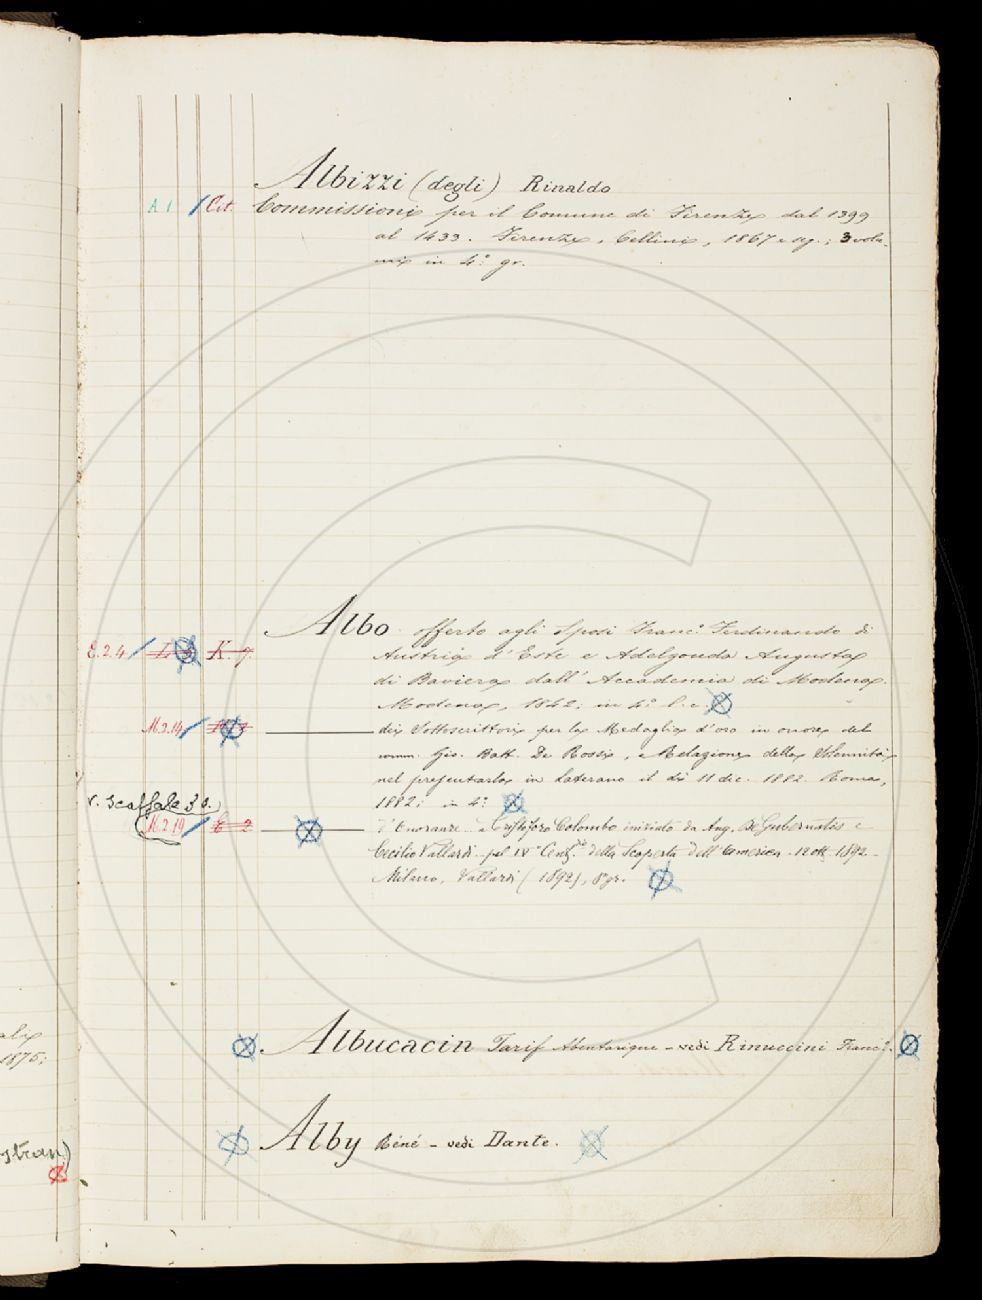 Albizzi (degli) Rinaldo
A.1 Cit. Commissioni per il Comune di Firenze dal 1399
al 1433. Firenze, Cellini, 1867 e sg.; 3 volu-
mi in 4.° gr.
Albo offerto agli Sposi Franc.° Ferdinando di
E.2.4 K. 7. Austria d'Este e Adelgonda Augusta
di Baviera dall'Accademia di Modena.
Modena, 1842; in 4.°
M.2.14 dei Sottoscrittori per la Medaglia d'oro in onore del
comm. Gio. Batt. De Rossi, e Relazione della Solennità
nel presentarla in Laterano il dì 11 dic. 1882. Roma,
1882; in 4.°
V. Scaffale 30.
M.2.19 E 2 d'Onoranze a Cristoforo Colombo iniziato da Ang. De Gubernatis e
Cecilio Vallardi pel IV° Cent. della Scoperta dell'America. 12 ott. 1892.
Milano, Vallardi (1892), 8° gr.
Albucacin Tarif Abentarique – vedi Rinuccini Franc.°
Alby Réné – vedi Dante.
1875;